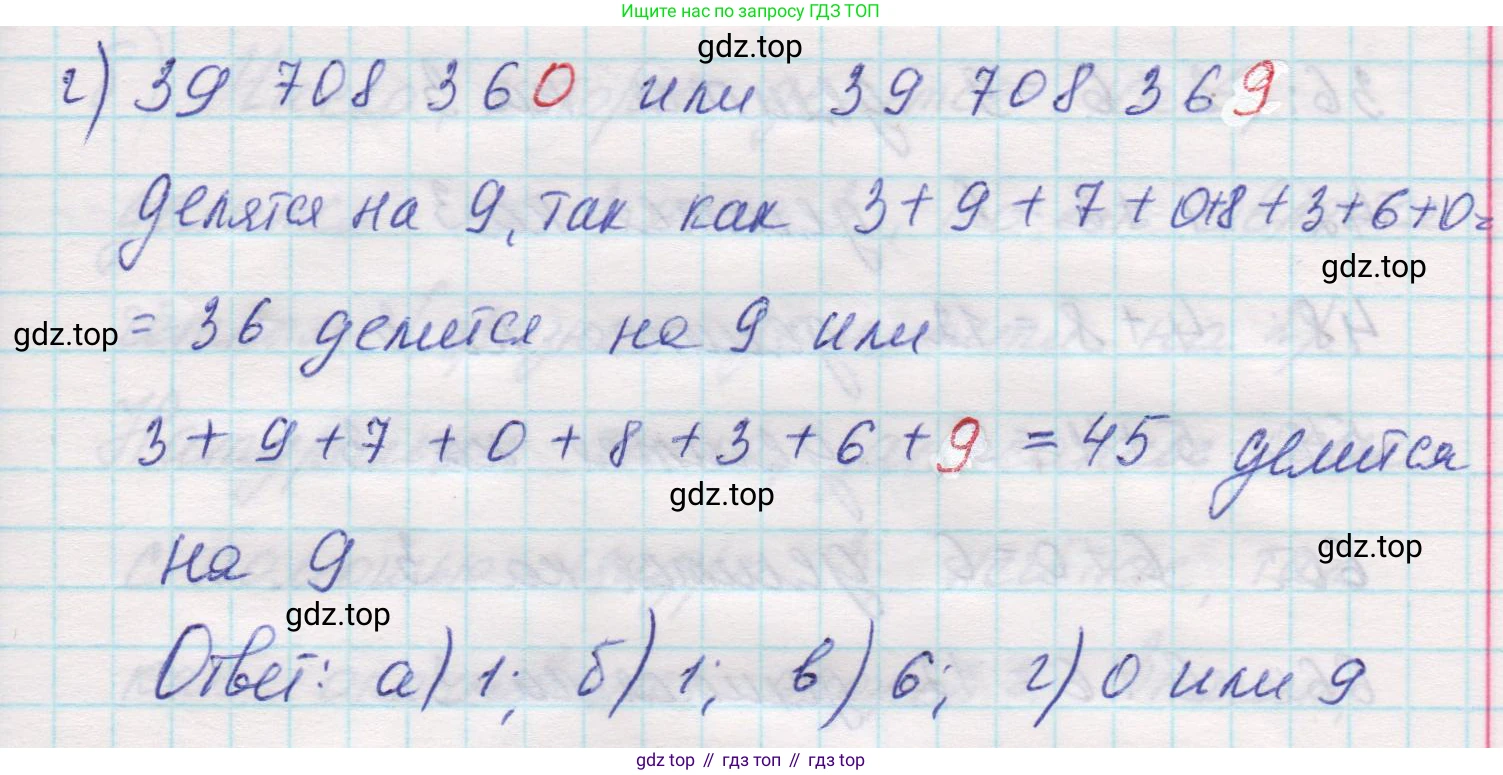 Ищите нас по запросу ГДЗ ТОП
gdz.top
г) 39 708 360 или 39 708 369
делятся на 9, так как 3+9+7+0+8+3+6+0=
gdz.top
gdz.top
= 36 делится на 9 или
3+9+7+0+8+3+6+9 = 45 делится
gdz.top
на 9
gdz.top
gdz.top
Ответ: а) 1; б) 1; в) 6; г) 0 или 9
gdz top // гдз топ // гдз top